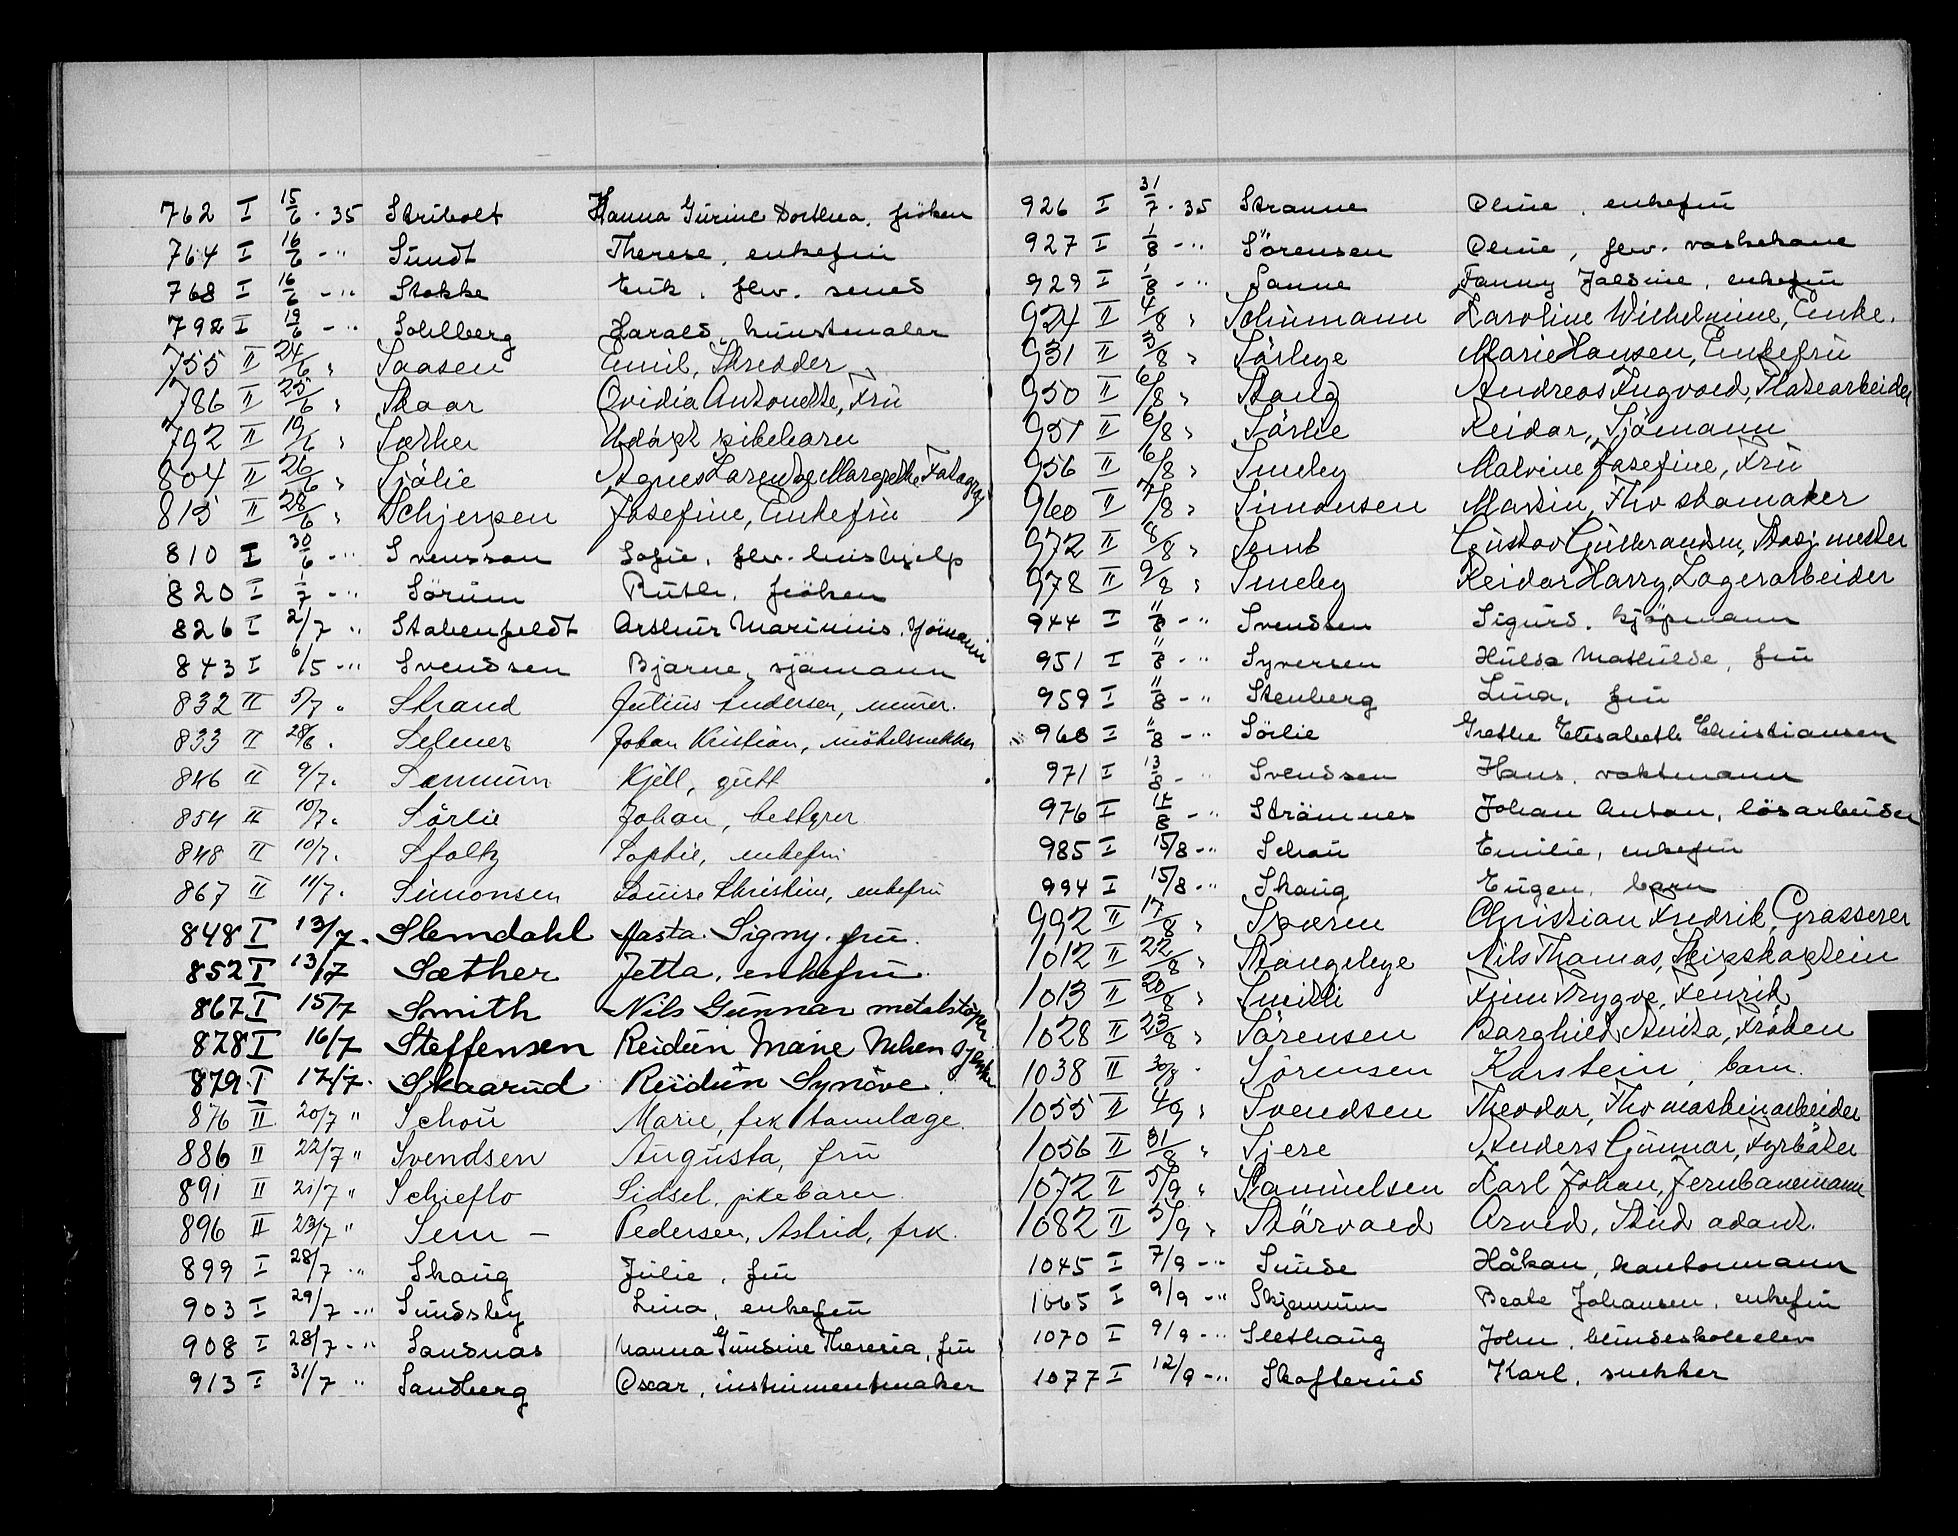 762 I 15/6 - 35 Stribolt Hanna Gurine Dorthea, fröken
764 I 16/6 - " Sundt Therese, enkefru
768 I 16/6 - " Stokke Erik, flw. smed
792 I 19/6 - " Sohlberg Harald, kunstmaler
755 II 24/6 " Saasen Emil, Skredder
786 II 25/6 " Skaar Ovidia Antonette, Fru
792 II 19/6 " Sæther Udöpt pikebarn
804 II 26/6 " Sjölie Agnes Larentze Margrethe Fotograf
815 II 28/6 " Schjerpen Josefine, Enkefru
810 I 30/6 - " Svensson Sofie, flw. hushjelp
820 I 1/7 - " Sörum Ruth, fröken
826 I 2/7 " Stabenfeldt Arthur Marinius, sjömann
843 I 6/5 - " Svendsen Bjarne, sjömann
832 II 5/7 " Strand Julius Andersen, murer.
833 II 28/6 " Selmer Johan Kristian, möbelsnekker
846 II 9/7. Sannum Kjell, gutt
854 II 10/7. Sörlie Johan, bestyrer
848 II 10/7. Stoltz Sophie, enkefru
867 II 11/7. Simonsen Louise Christine, enkefru
848 I 13/7. Slemdahl Aasta Signy, fru.
852 I 13/7 Sæther Jetta, enkefru.
867 I 15/7 Smith Nils Gunnar metalstöper
878 I 16/7 Steffensen Reidun Marie Nilsen
879 I 17/7. Skaarud Reidun Synöve.
876 II 20/7 " Schou Marie, frk tannlæge.
886 II 22/7 " Svendsen Augusta, fru
891 II 21/7 " Schieflo Sidsel, pikebarn.
896 II 23/7 " Sem - Pedersen, Astrid, frk.
899 I 28/7 - " Skaug Julie, fru
903 I 29/7 - " Sundsby Lina, enkefru
908 I 28/7 - " Sandnas Nanna Gundine Theresia, fru
913 I 31/7 " Sandberg Oscar, instrumentmaker
926 I 31/7 - 35 Stranne Oline, enkefru
927 I 1/8 - " Sörensen Oline, flw. vaskekone
929 I 1/8 - " Sanne Fanny Jaldine, enkefru
924 II 4/8 " Schumann Karoline Wilhelmine, Enke.
931 II 3/8 " Sörbye Marie Hansen, Enkefru
950 II 6/8 " Stang Andreas Ingvald, Platearbeider
951 II 6/8 " Sörlie Reidar, Sjömann
956 II 6/8 " Smeby Malvine Josefine, Fru
960 II 7/8 " Simonsen Martin, Fhv skomaker
972 II 8/8 " Semb Gustav Gulbrandsen, Stasj. mester
978 II 9/8 " Smeby Reidar Harry, Lagerarbeider
944 I "/8 - " Svendsen Sigurd, kjöpmann
951 I "/8 - " Syversen Hulda Mathilde, fru
959 I "/8 - " Stenberg Lina, fru
968 I "/8 - " Sörlie Grethe Elisabeth Christiansen
971 I 13/8 - " Svendsen Hans, vaktmann
976 I 14/8 - " Strömnes Johan Anton, lösarbeider
985 I 15/8 - " Schou Emilie, enkefru
994 I 15/8 - " Skaug Eugen, barn
992 II 17/8 " Spæren Christian Fredrik, Grosserer
1012 II 22/8 " Stangebye Nils Thomas, Skipskaptein
1013 II 20/8 " Smidli Finn Trygve, Fenrik
1028 II 23/8 " Sörensen Borghild Anita, Fröken
1038 II 30/8 " Sørensen Karstein, barn.
1055 II 4/9 " Svendsen Theodor, Fhv maskinarbeider
1056 II 31/8 " Sjere Anders Gunnar, Fyrböter
1072 II 5/9 " Samuelsen Karl Johan, Jernbanemann
1082 II 5/9 " Störvold Arvid, Stud adont.
1045 I 7/9 - " Sunde Håkan, kontormann
1065 I 9/9 - " Skjennum Beate Johansen, enkefru
1070 I 9/9 - " Slethaug John, blindeskoleelev
1077 I 12/9 - " Skofterud Karl, snekker